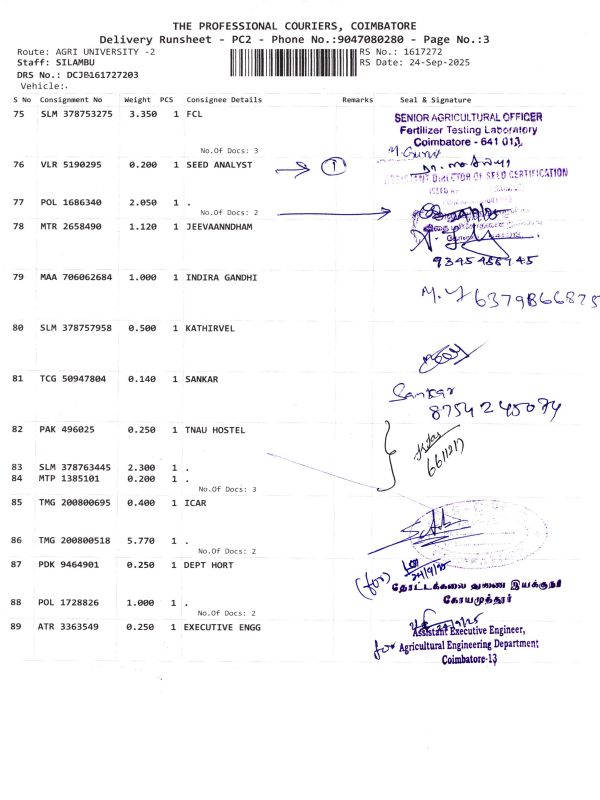 THE PROFESSIONAL COURIERS, COIMBATORE
Delivery Runsheet - PC2 - Phone No.:9047080280 - Page No.:3
Route: AGRI UNIVERSITY -2 RS No.: 1617272
Staff: SILAMBU RS Date: 24-Sep-2025
DRS No.: DCJB161727203
Vehicle:.
S No Consignment No Weight PCS Consignee Details Remarks Seal & Signature
75 SLM 378753275 3.350 1 FCL
SENIOR AGRICULTURAL OFFICER
Fertilizer Testing Laboratory
Coimbatore - 641 013.
No.Of Docs: 3
76 VLR 5190295 0.200 1 SEED ANALYST 1
DIRECTOR OF SEED CERTIFICATION
77 POL 1686340 2.050 1 .
No.Of Docs: 2
78 MTR 2658490 1.120 1 JEEVAANNDHAM
79 MAA 706062684 1.000 1 INDIRA GANDHI
80 SLM 378757958 0.500 1 KATHIRVEL
81 TCG 50947804 0.140 1 SANKAR
Sankar
82 PAK 496025 0.250 1 TNAU HOSTEL
83 SLM 378763445 2.300 1 .
84 MTP 1385101 0.200 1 .
No.Of Docs: 3
85 TMG 200800695 0.400 1 ICAR
86 TMG 200800518 5.770 1 .
No.Of Docs: 2
87 PDK 9464901 0.250 1 DEPT HORT
(for) 24/9/25
தோட்டக்கலை துணை இயக்குநர்
கோயமுத்தூர்
88 POL 1728826 1.000 1 .
No.Of Docs: 2
89 ATR 3363549 0.250 1 EXECUTIVE ENGG
Assistant Executive Engineer,
for Agricultural Engineering Department
Coimbatore-13